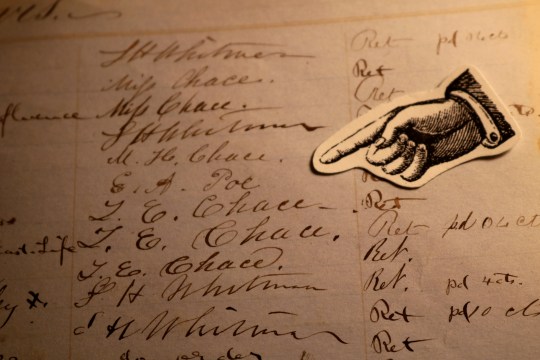 S H Whitman Ret pd 06 cts
Miss Chace. Ret
fluence Miss Chace. Ret
S H Whitman
M. H. Chace.
E. A. Poe
T. E. Chace Ret
T. E. Chace, Ret pd 04 cts
T. E. Chace. Ret.
S H Whitman Ret. pd 4 cts.
S H Whitman Ret pd 10 cts
Ret